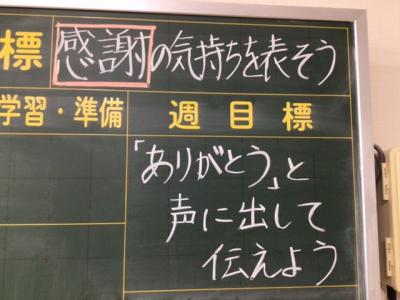 標 感謝の気持ちを表そう
学習・準備 週目標
「ありがとう」と
声に出して
伝えよう